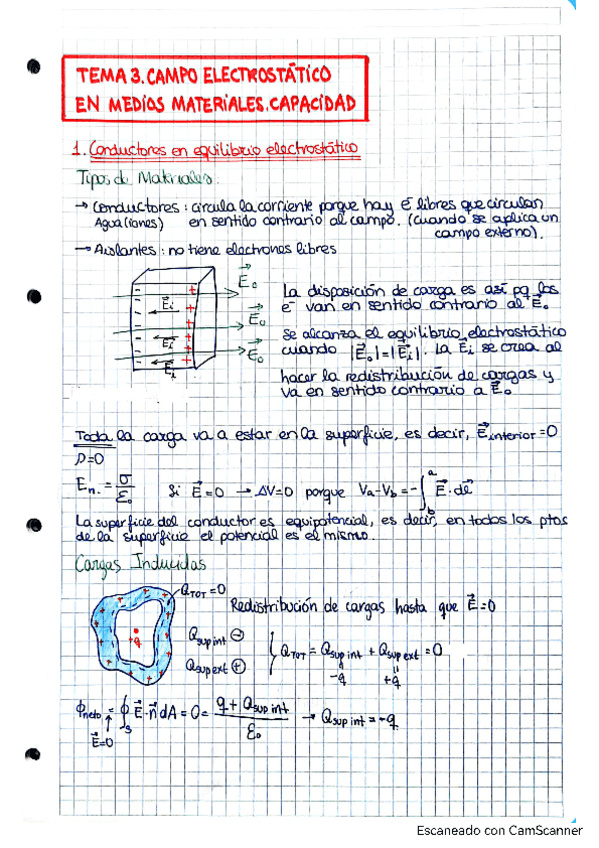 TEMA 3. CAMPO ELECTROSTÁTICO
EN MEDIOS MATERIALES. CAPACIDAD
1. Conductores en equilibrio electrostático
Tipos de Materiales.
→ Conductores: circula la corriente porque hay e⁻ libres que circulan
Agua (iones) en sentido contrario al campo. (cuando se aplica un
campo externo).
→ Aislantes: no tiene electrones libres
E⃗₀
E⃗₀
E⃗₀
E⃗i
E⃗i
E⃗i
La disposición de carga es así pq los
e⁻ van en sentido contrario al E⃗₀
Se alcanza el equilibrio electrostático
cuando |E⃗₀|=|E⃗i|. La E⃗i se crea al
hacer la redistribución de cargas y
va en sentido contrario a E⃗₀
Toda la carga va a estar en la superficie, es decir, E⃗interior = 0
ρ=0
En. = σ/ε₀ Si E⃗=0 → ΔV=0 porque Va-Vb = -∫ᵇᵃ E⃗·dℓ⃗
La superficie del conductor es equipotencial, es decir, en todos los ptos
de la superficie el potencial es el mismo.
Cargas Inducidas
QTOT = 0
Redistribución de cargas hasta que E⃗=0
+q
Qsup int ⊖
Qsup ext ⊕
{ QTOT = Qsup int + Qsup ext = 0
-q +q
ϕneto = ∮s E⃗·n⃗ dA = 0 = (q + Qsup int)/ε₀ → Qsup int = -q
E⃗=0
Escaneado con CamScanner